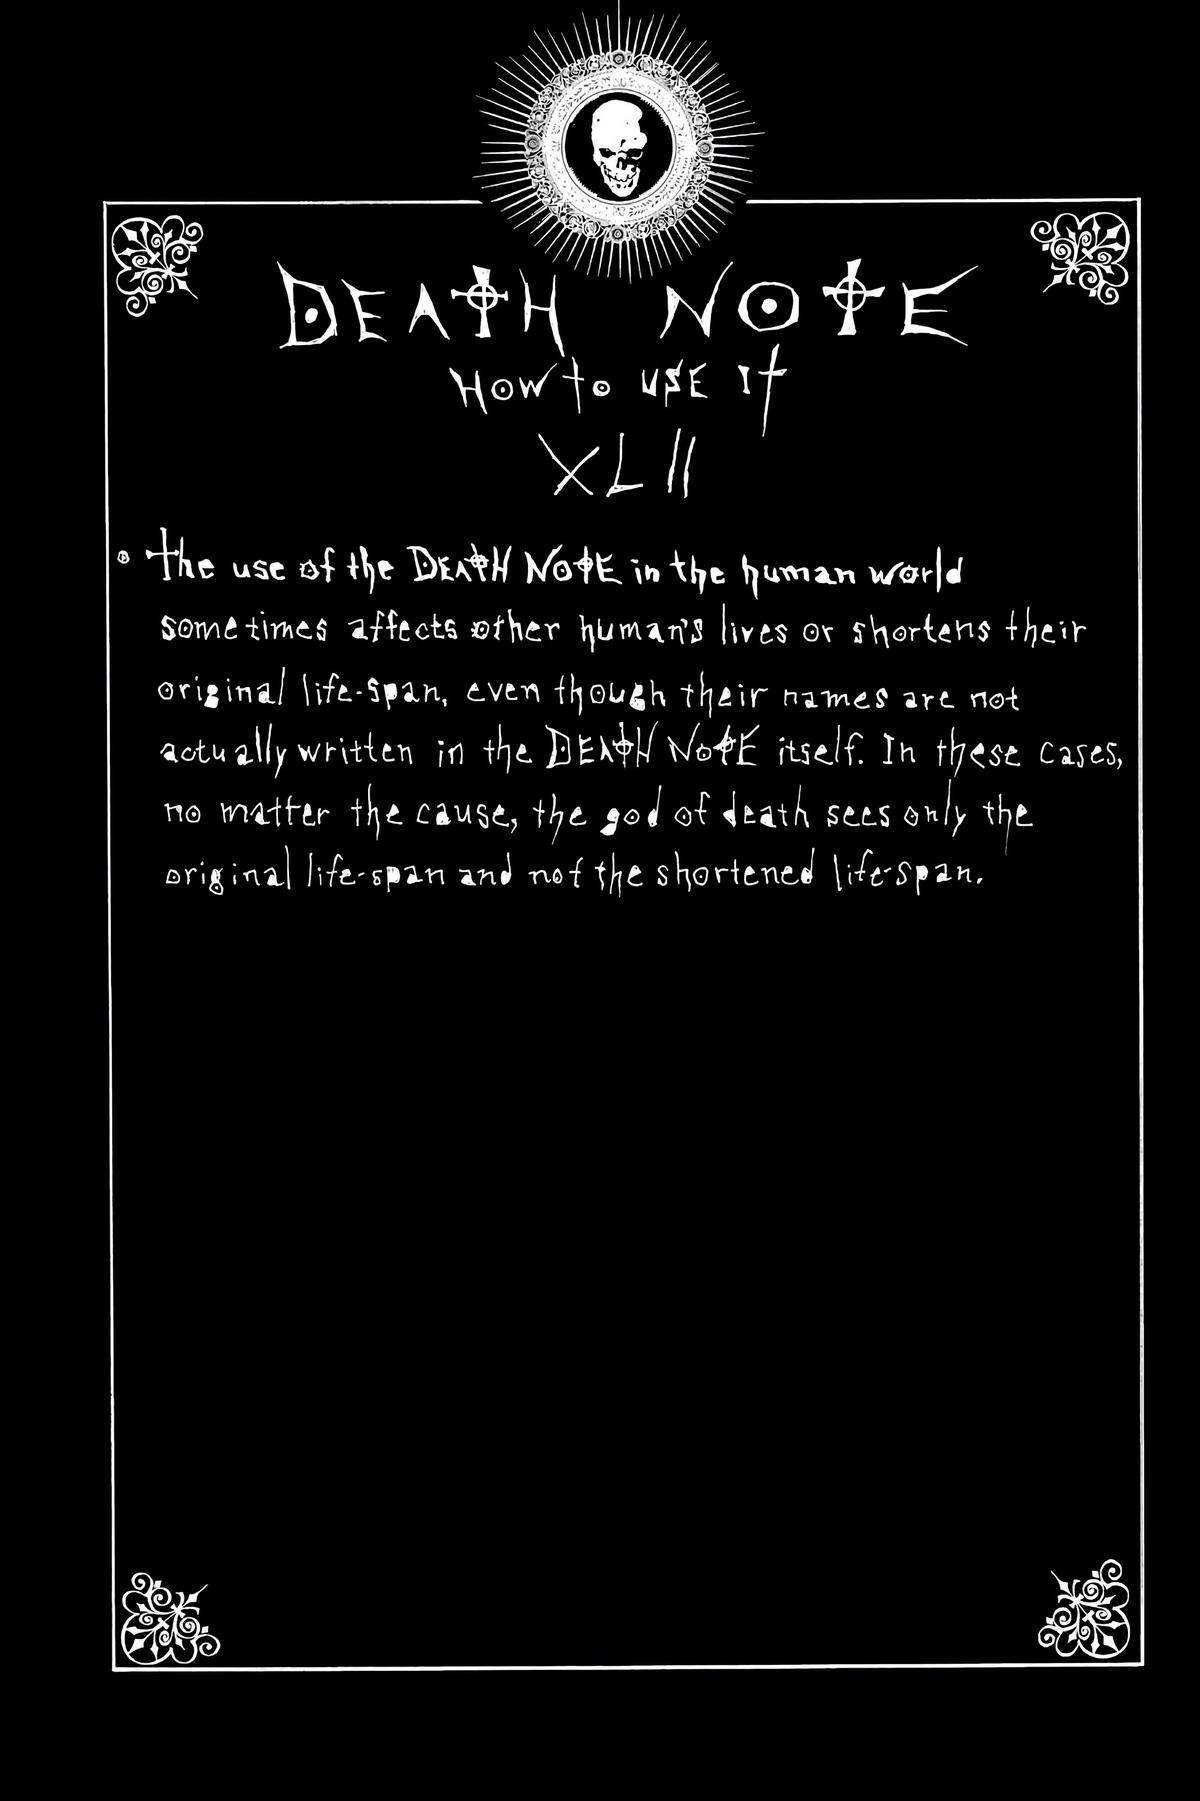 DEATH NOTE
HOW to USE It
XLII
• The use of the DEATH NOTE in the human world
sometimes affects other human's lives or shortens their
original life-span, even though their names are not
actually written in the DEATH NOTE itself. In these cases,
no matter the cause, the god of death sees only the
original life-span and not the shortened life-span.